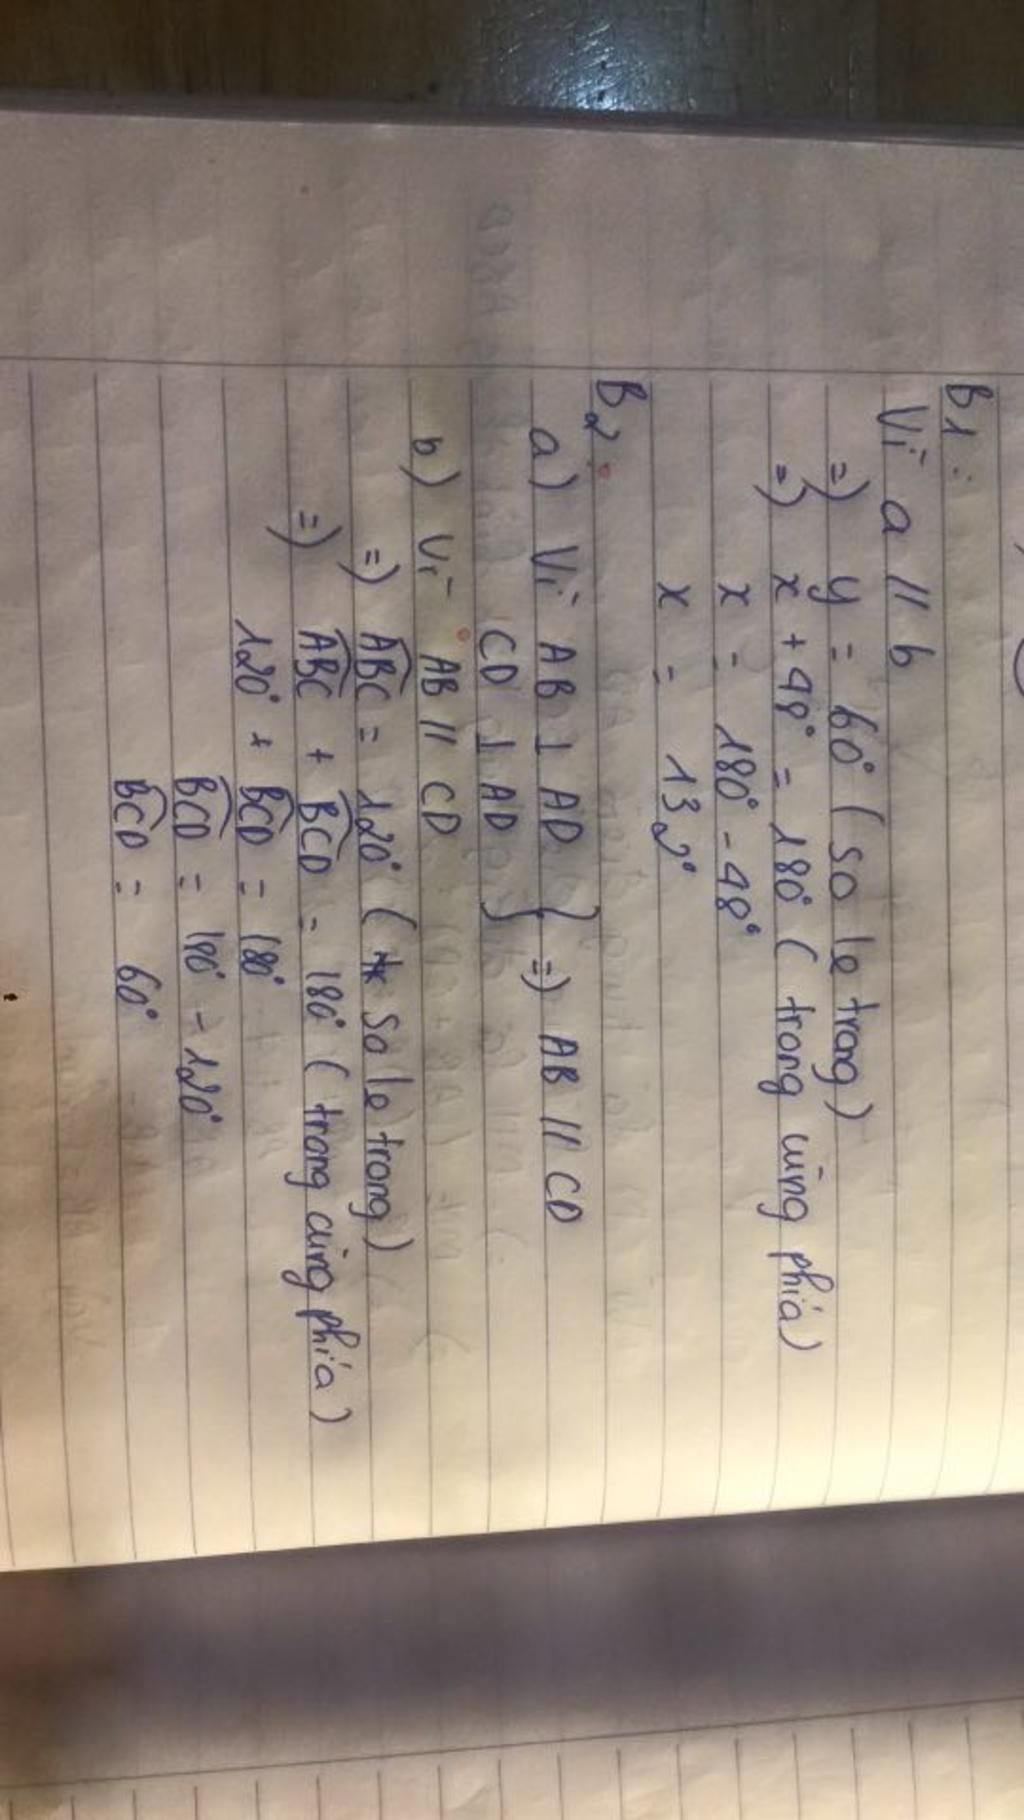 B1:
Vì a // b
=) y = 60° (so le trong)
=) x + 48° = 180° (trong cùng phía)
x = 180° - 48°
x = 132°
B2:
a) Vì AB ⊥ AD
CD ⊥ AD } =) AB // CD
b) Vì AB // CD
=) ABC = 120° (so le trong)
=) ABC + BCD = 180° (trong cùng phía)
120° + BCD = 180°
BCD = 180° - 120°
BCD = 60°